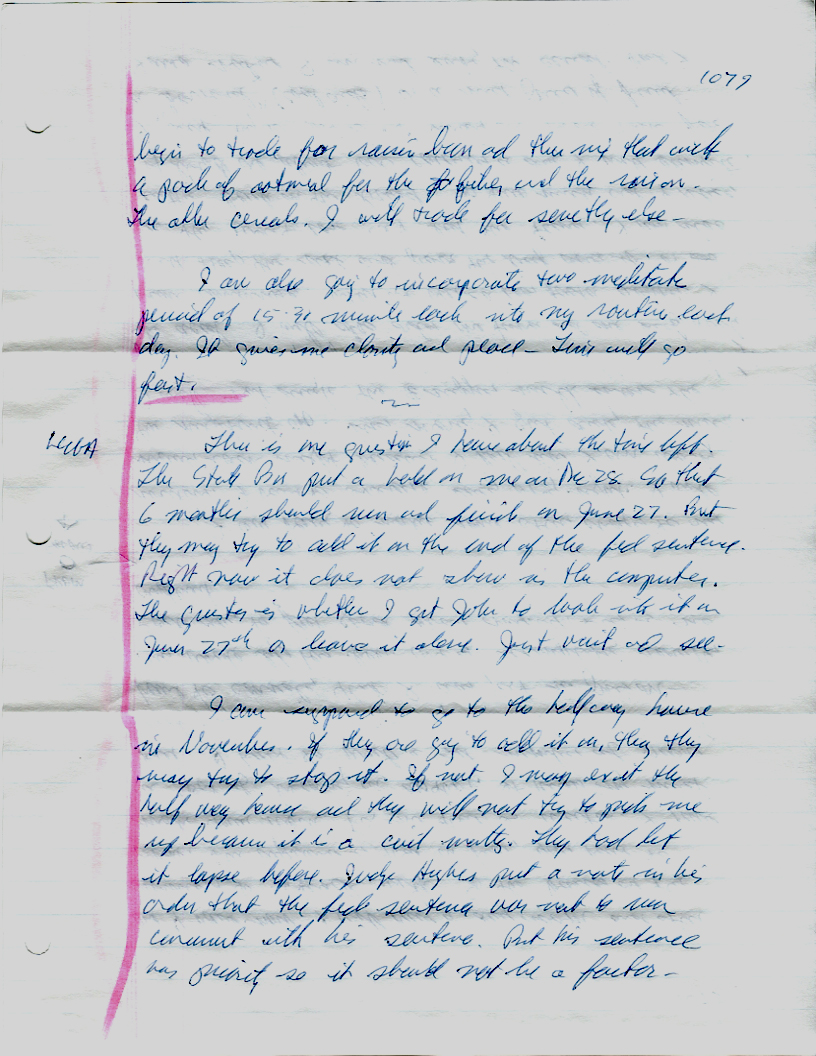 1079
begin to trade for raisin bran ad then mix that with
a pack of oatmeal for the fiber and the raison.
The other cereals. I will trade for somethg else—
I am also going to incorporate two meditate
period of 15-30 minute each into my routine each
day. It gives me clarity ad peace— Time will go
fast.
There is one question I have about the time left.
The State Bar put a hold on me on Dec 28. So that
6 months should run ad finish on June 27. But
they may try to add it on the end of the fed sentence.
Right now it does not show on the computer.
The question is whether I get John to look into it on
June 27th or leave it alone. Just wait ad see—
I am supposed to go to the halfway house
in November. If they are going to add it on, they
may try to stop it. If not. I may exit the
half way house ad they will not try to pick me
up because it is a civil matter. They had let
it lapse before. Judge Hughes put a note in his
order that the fede sentence was not to run
concurrent with his sentence. But his sentence
has priority so it should not be a factor—